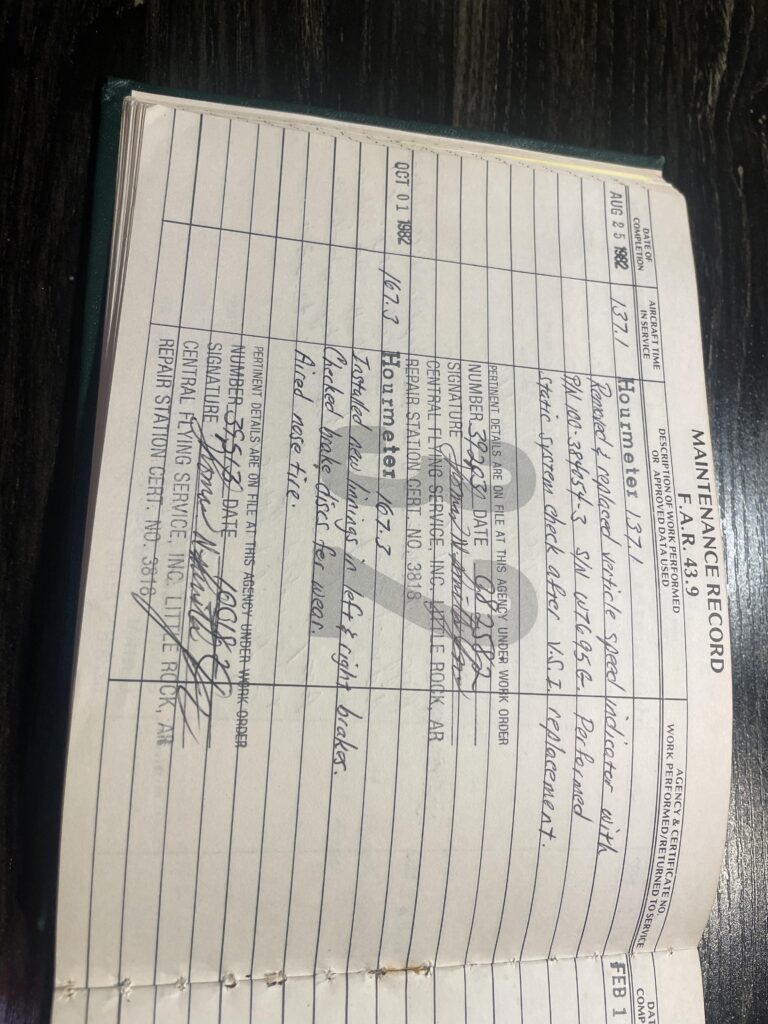 MAINTENANCE RECORD
F.A.R. 43.9
DATE OF
COMPLETION
AIRCRAFT TIME
IN SERVICE
DESCRIPTION OF WORK PERFORMED
OR APPROVED DATA USED
AGENCY & CERTIFICATE NO.
WORK PERFORMED/RETURNED TO SERVICE
AUG 25 1982 137.1 Hourmeter 137.1
Removed & replaced verticle speed indicator with
P/N 100-384054-3 S/N W7695G. Performed
static system check after V.S.I. replacement.
PERTINENT DETAILS ARE ON FILE AT THIS AGENCY UNDER WORK ORDER
NUMBER 39293 DATE 082582
SIGNATURE
CENTRAL FLYING SERVICE, INC, LITTLE ROCK, AR
REPAIR STATION CERT. NO. 3818
OCT 01 1982 167.3 Hourmeter 167.3
Installed new linnings in left & right brakes.
Checked brake discs for wear.
Aired nose tire.
PERTINENT DETAILS ARE ON FILE AT THIS AGENCY UNDER WORK ORDER
NUMBER DATE
SIGNATURE
CENTRAL FLYING SERVICE, INC, LITTLE ROCK, AR
REPAIR STATION CERT. NO. 3818
DAT
COMP
FEB 1